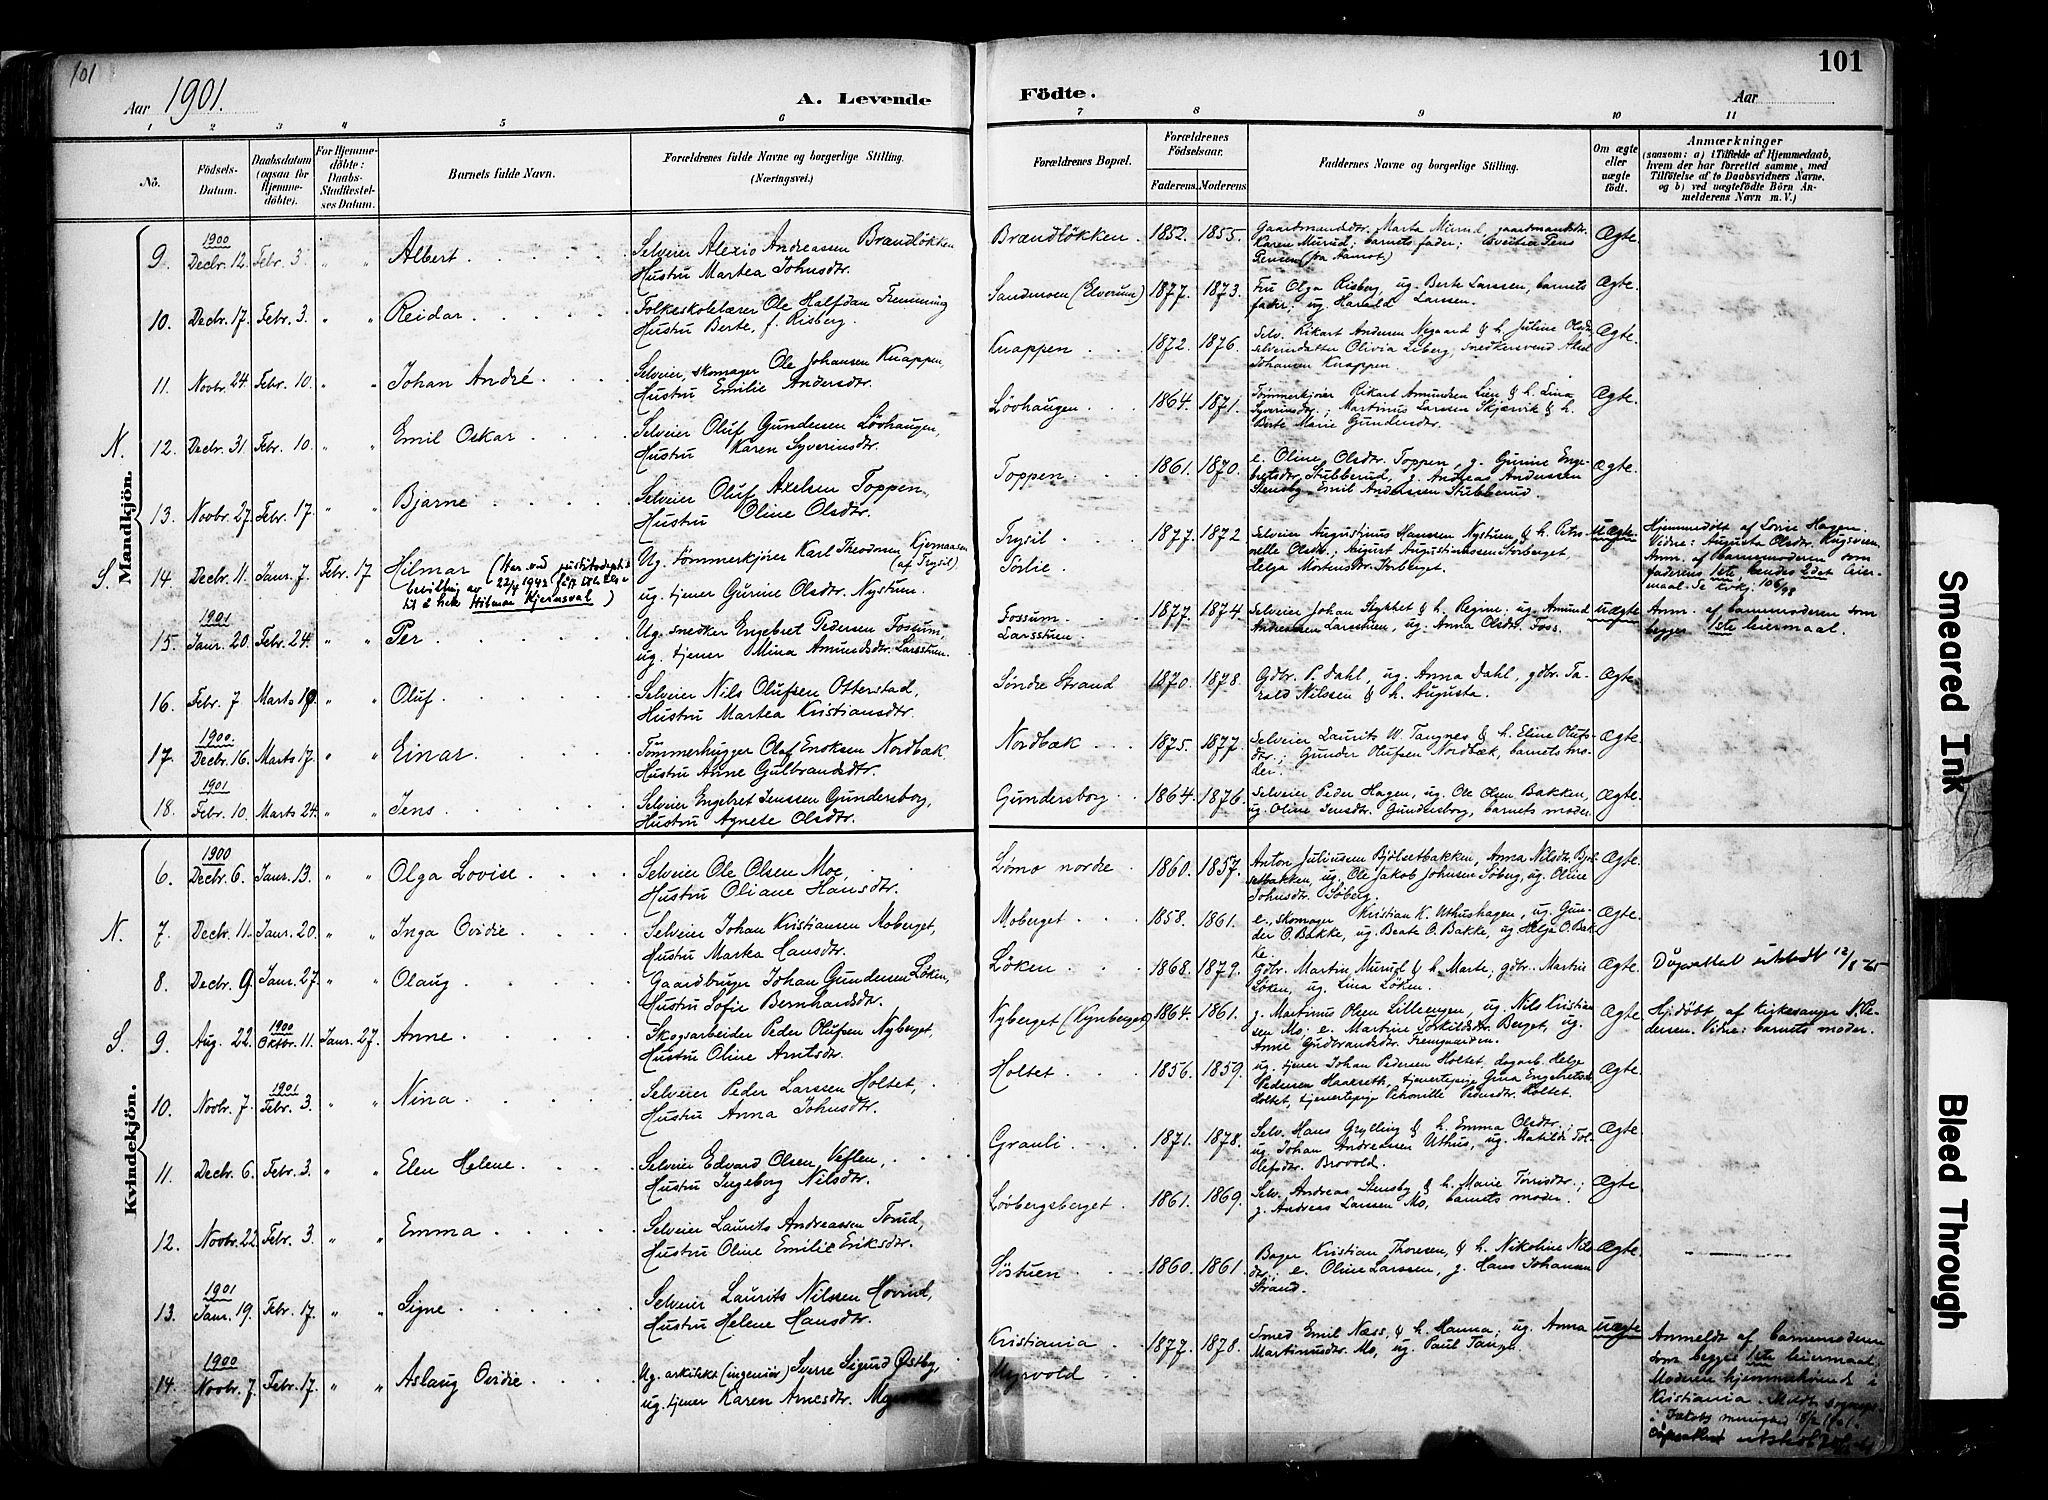 101
101
Aar 1901.
A. Levende Födte.
Aar
1 2 3 4 5 6 7 8 9 10 11
No.
Födsels-Datum.
Daabsdatum (ogsaa for Hjemme-döbte).
For Hjemme-döbte: Daabs-Stadfæstel-ses Datum.
Barnets fulde Navn.
Forældrenes fulde Navne og borgerlige Stilling. (Næringsvei.)
Forældrenes Bopæl.
Forældrenes Födselsaar.
Faderens. Moderens.
Faddernes Navne og borgerlige Stilling.
Om ægte eller uægte födt.
Anmærkninger
(saasom: a) i Tilfælde af Hjemmedaab, hvem der har forrettet samme, med Tilföielse af to Daabsvidners Navne, og b) ved uægtefödte Börn Anmelderens Navn m. V.)
Mandkjön.
N.
S.
9. 1900 Decbr. 12. Febr. 3. " " Albert
Selveier Alexio Andreassen Brændløkken
Hustru Martea Johnsdtr.
Brændløkken. 1852. 1855.
Gaardmandsdtr. Marta Murud, gaardmandsdtr.
Karen Murud; barnets fader;
Jensen (fra Aamot)
Ægte.
10. Decbr. 17. Febr. 3. " " Reidar
Folkeskolelærer Ole Halfdan Fremming
Hustru Berte, f. Risberg.
Sandersen (Elverum) 1877. 1873.
Fru Olga Risberg, ug. Berte Larssen, barnets
fader; ug. Harald Larssen.
Ægte.
11. Novbr. 24. Febr. 10. " " Johan André
Selveier, skomager Ole Johansen Knappen,
Hustru Emilie Andersdtr.
Knappen 1872. 1876.
Selv. Rikart Andersen Negaard & h. Juline Olsdtr.
selveierdatter Olivia Liberg, snedkersvend Aksel
Johansen Knappen.
Ægte.
12. Decbr. 31. Febr. 10. " " Emil Oskar
Selveier Oluf Gundersen Løvhaugen,
Hustru Karen Syverinsdtr.
Løvhaugen 1864. 1871.
Tømmerkjører Rikart Amundsen Lien & h. Lina
Syverinsdtr.; Martinus Larssen Skjærvik & h.
Berte Marie Gundersdtr.
Ægte.
13. Novbr. 27. Febr. 17. " " Bjarne
Selveier Oluf Axelsen Toppen,
Hustru Oline Olsdtr.
Toppen 1861. 1870.
e. Oline Olsdtr. Toppen, g. Gurine Enge-
bretsdtr. Stubberud, g. Andreas Anderssen
Stensby, Emil Anderssen Stubberud.
Ægte.
14. Decbr. 11. Janr. 7. Febr. 17 Hilmar (Har ved justitsdept.s
bevilling av 22/4 1943 fått
til å hete Hilmar Kjernsval)
Ug. tømmerkjører Karl Theodorsen Kjernaasen
(af Trysil)
ug. tjener Gurine Olsdtr. Nystuen.
Trysil
1877. 1872
Selveier Augustinus Hanssen Nystuen & h. Petro-
nelle Olsdtr.; August Augustinussen Storberget,
Helja Mortensdtr. Storberget.
Uægte.
Hjemmedøbt af Lovise Hagen.
Vidne: Augusta Olsdtr. Rugsveen.
Anm. af barnemoderen som
faderens 1ste hendes 2det leier-
maal. Se kvkj. 106/98
15. 1901 Janr. 20. Febr. 24. " " Per
Ug. snedker Engebret Pedersen Fossum,
ug. tjener Mina Amundsdtr. Larsstuen.
Fossum.
Larsstuen.
1877. 1874.
Selveier Johan Stykket & h. Regine; ug. Amund
Andreassen Larsstuen, ug. Anna Olsdtr. Foss.
Uægte
Anm. af barnemoderen som
begges 1ste leiermaal.
16. Febr. 7 Marts 10. " " Oluf
Selveier Nils Olufsen Otterstad,
Hustru Martea Kristiansdtr.
Søndre Strand 1870. 1878.
Gdbr. P. Dahl, ug. Anna Dahl, gdbr. Ta-
rald Nilssen & h. Augusta.
Ægte.
17. 1900. Decbr. 16. Marts 17. " " Einar
Tømmerhugger Olaf Enoksen Nordbæk
Hustru Anne Gulbrandsdtr.
Nordbæk 1875. 1877.
Selveier Laurits W. Tangnes & h. Eline Olufs-
dtr.; Gunder Olufsen Nordbæk, barnets mo-
der.
Ægte.
18. 1901 Febr. 10. Marts 24. " " Jens
Selveier Engebret Jenssen Gundersborg,
Hustru Agnete Olsdtr.
Gundersborg 1864. 1876.
Selveier Peder Hagen, ug. Ole Olsen Bakken,
ug. Oline Jensdtr. Gundersborg, barnets moder.
Ægte.
Kvindekjön.
N.
S.
6. 1900 Decbr. 6. Janr. 13. " " Olga Lovise
Selveier Ole Olsen Moe,
Hustru Oliane Hansdtr.
Lømo nordre 1860. 1857.
Anton Juliussen Bjølsetbakken, Anna Nilsdtr. Bjøl-
setbakken, ug. Ole Jakob Johnsen Søberg, ug. Oline
Johnsdtr. Søberg.
Ægte.
7. Decbr. 11. Janr. 20. " " Inga Ovidie
Selveier Johan Kristiansen Moberget,
Hustru Marka Hansdtr.
Moberget 1858. 1861.
e. skomager Kristian K. Uthushagen, ug. Gun-
der O. Bakke, ug. Beate O. Bakke, ug. Helje O. Bak-
ke.
Ægte.
8. Decbr. 9. Janr. 27. " " Olaug
Gaardbruger Johan Gundersen Løken,
Hustru Sofie Bernhardsdtr.
Løken 1868. 1879.
Gdbr. Martin Murud & h. Marte; gdbr. Martin
Løken, ug. Lina Løken.
Ægte.
Dåpsattest utstedt 12/8 65
9. Aug. 22. 1900 Oktbr. 11. Janr. 27. Anne
Skogsarbeider Peder Olufsen Nyberget,
Hustru Oline Arntsdtr.
Nyberget (Kynberget) 1864. 1861.
g. Martinus Olsen Lilleengen, ug. Nils Kristian-
sen Mo; e. Martine Torkildsdtr. Berget, ug.
Anne Gudbrandsdtr. Fremgaarden.
Ægte
Hj.døbt af kirkesanger N. Pe-
dersen. Vidne: barnets moder.
10. Novbr. 7. 1901 Febr. 3. " " Nina
Selveier Peder Larssen Holtet,
Hustru Anna Johnsdtr.
Holtet 1856. 1859.
ug. tjener Johan Pedersen Holtet, dagarb. Helge
Pedersen Haakseth, tjenestepige Gina Engebretsd.
Holtet, tjenestepige Petronille Pedersdtr. Holtet.
Ægte.
11. Decbr. 6. Febr. 3. " " Elen Helene
Selveier Edvard Olsen Veflen,
Hustru Ingeborg Nilsdtr.
Grauli 1871. 1878.
Selv. Hans Grylling & h. Emma Olsdtr.;
ug. Johan Andreassen Uthus, ug. Matilde Tol-
lefsdtr. Brovold.
Ægte.
12. Novbr. 22. Febr. 3. " " Emma
Selveier Laurits Andreassen Torud,
Hustru Oline Emilie Eriksdtr.
Løvbergsberget 1861. 1869.
Selv. Andreas Stensby & h. Marie Torrisdtr.;
g. Andreas Larssen Mo, barnets moder.
Ægte.
13. 1901 Janr. 19. Febr. 17. " " Signe
Selveier Laurits Nilssen Hovind,
Hustru Helene Hansdtr.
Søstuen 1860. 1861.
Bager Kristian Thoresen, & h. Nikoline Nils-
dtr.; e. Oline Larssen, g. Hans Johansen
Strand.
Ægte.
14. 1900 Novbr. 7. Febr. 17. " " Aslaug Ovidie
Ug. arkitekt (ingeniør) Sverre Sigurd Østby,
ug. tjener Karen Arnesdtr.
Kristiania
Myrvold
1877. 1878.
Smed Emil Næss, & h. Hanna; ug. Anna
Martinusdtr. Mo, ug. Paul Tange.
Uægte
Anmeldt af barnemoderen
som begges 1ste leiermaal.
Moderen hjemmehørende i
Kristiania.
i Jakobs menighed
Smeared Ink
Bleed Through